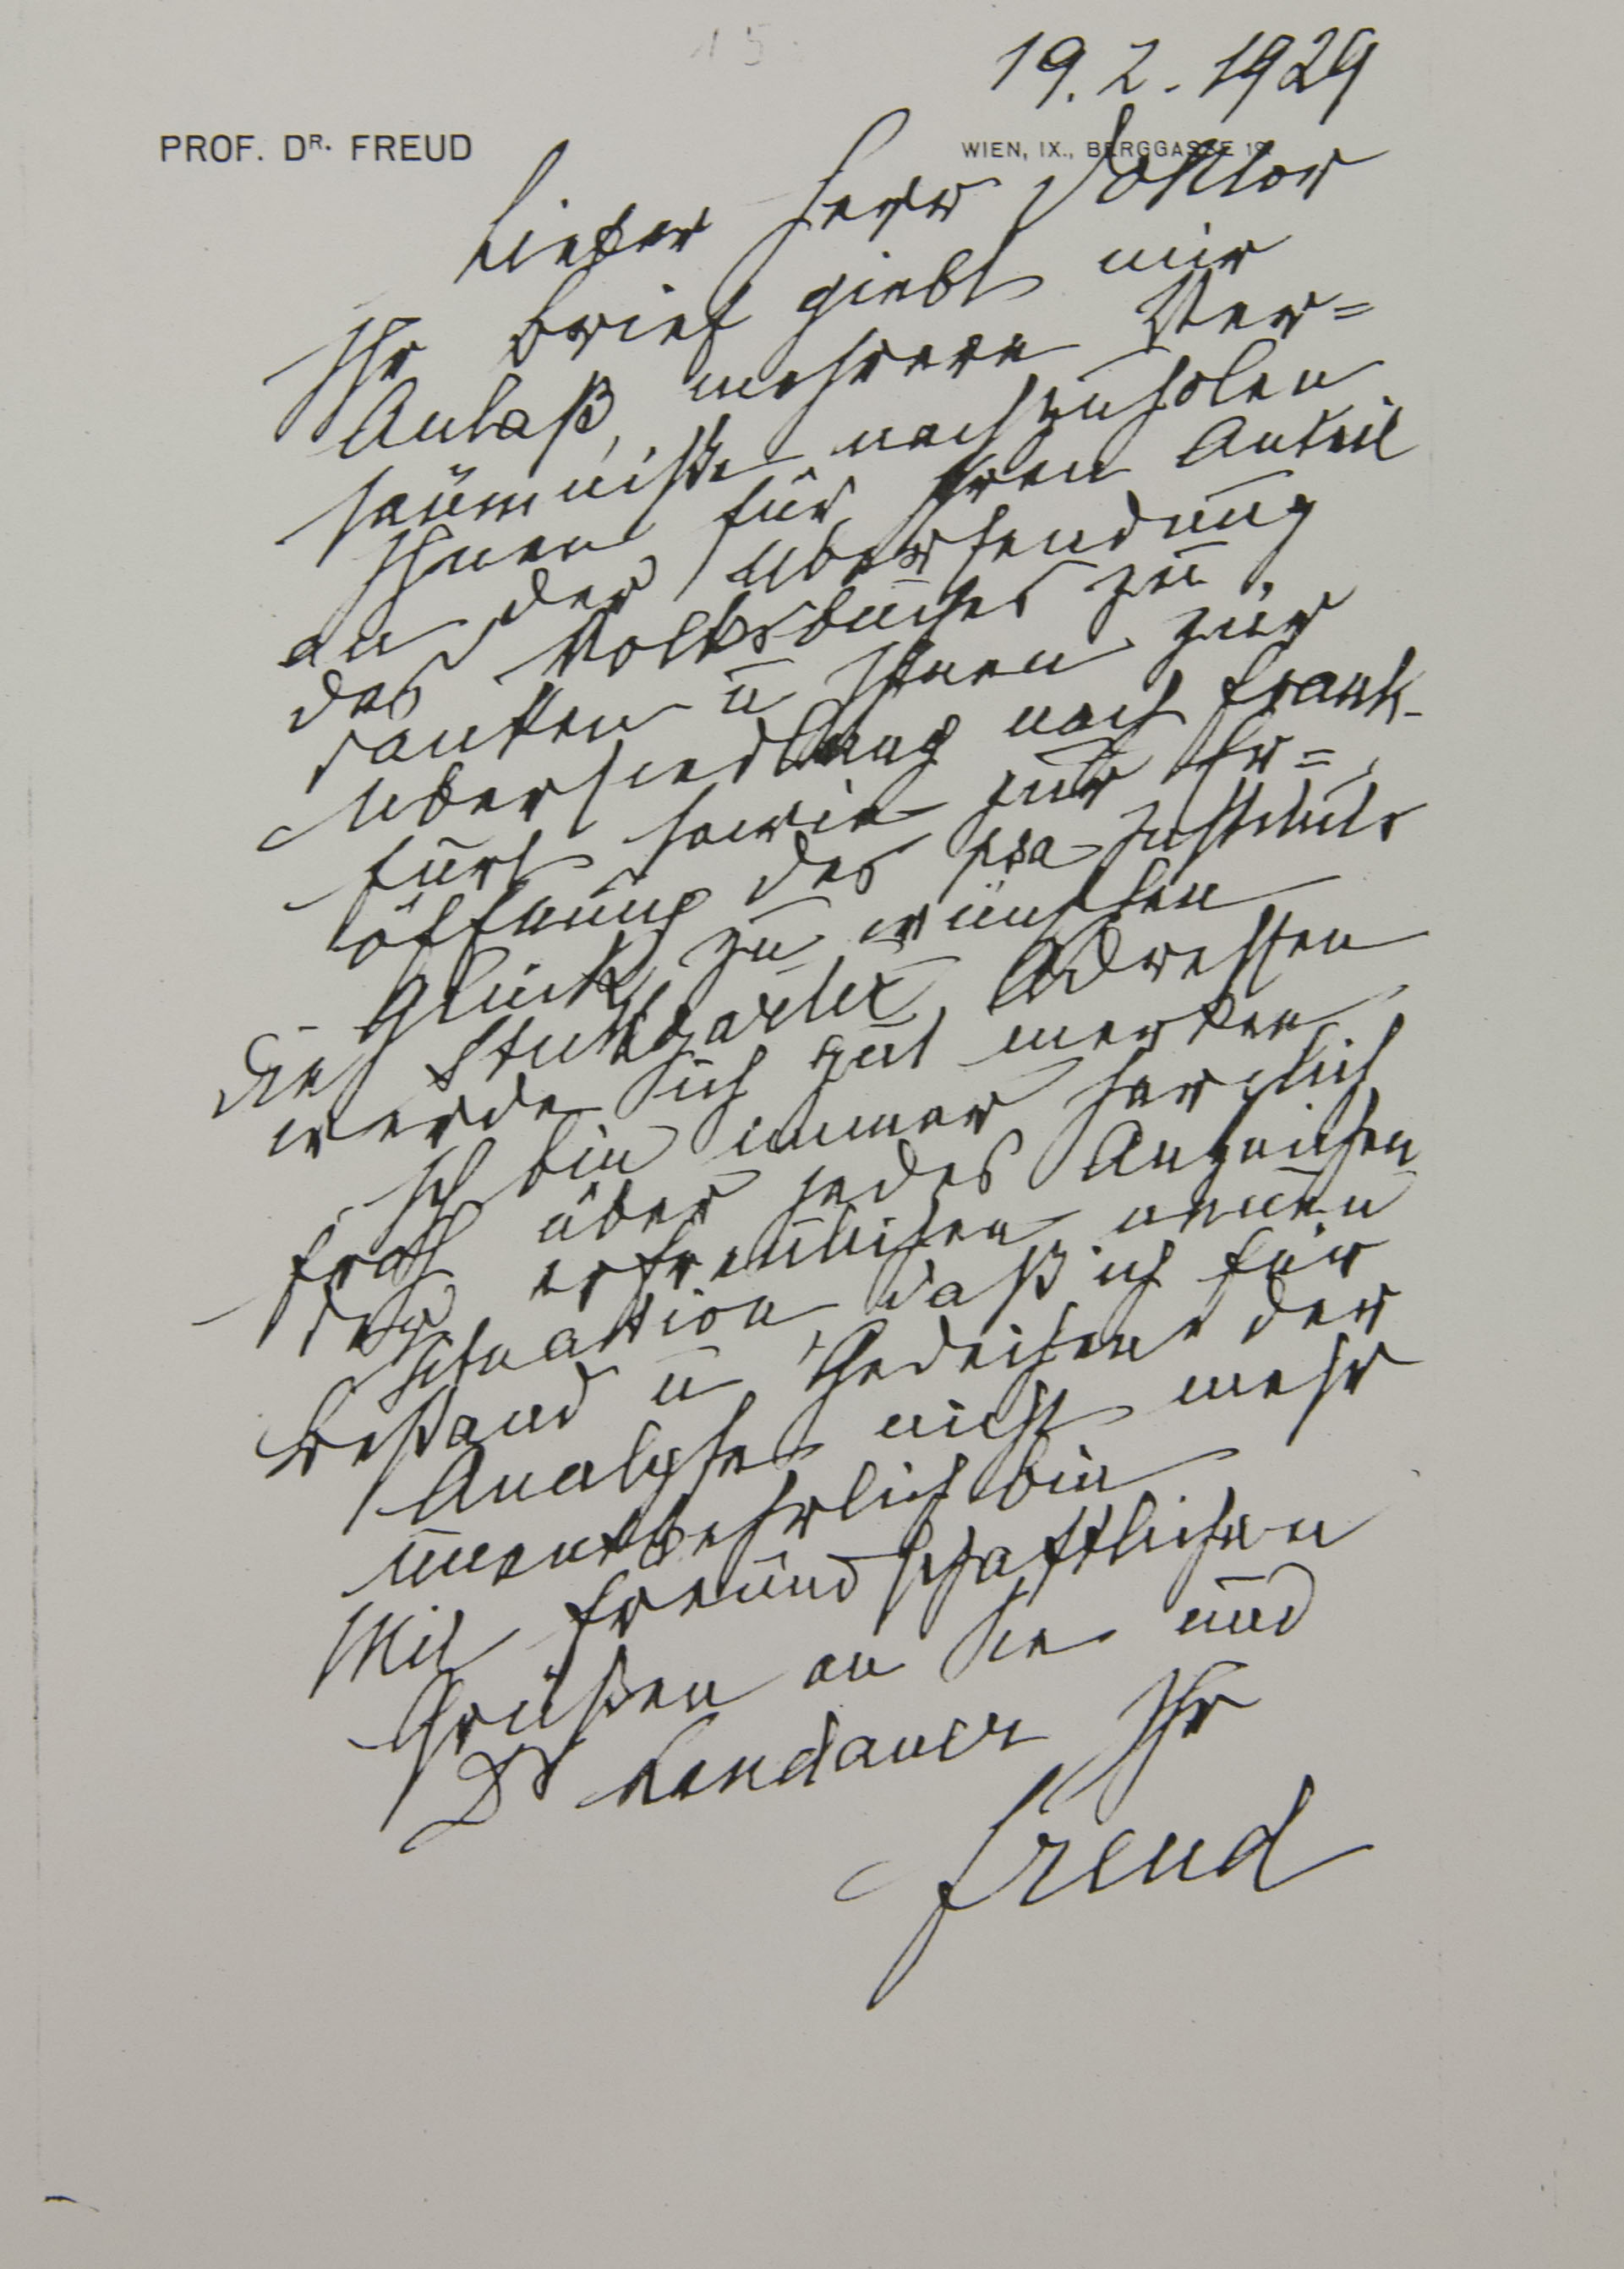 15.
19. 2. 1929
PROF. DR. FREUD
WIEN, IX., BERGGASSE 19
Lieber Herr Doktor
Ihr Brief giebt mir
Anlaß, mehrere Ver=
säumniße nachzuholen
Ihnen für Ihren Anteil
an der Übersendung
des Volksbuches zu
danken u Ihnen zur
Übersiedlung nach Frank-
furt sowie zur Er=
öffnung des psa Instituts
Glück zu wünschen
Die Stuttgarter Adressen
werde ich gut merken
Ich bin immer herzlich
froh über jedes Anzeichen
der erfreulichen neuen
Situation, daß ich für
Bestand u Gedeihen der
Analyse nicht mehr
unentbehrlich bin
Mit freundschaftlichen
Grüßen an Sie und
Dr Landauer Ihr
Freud